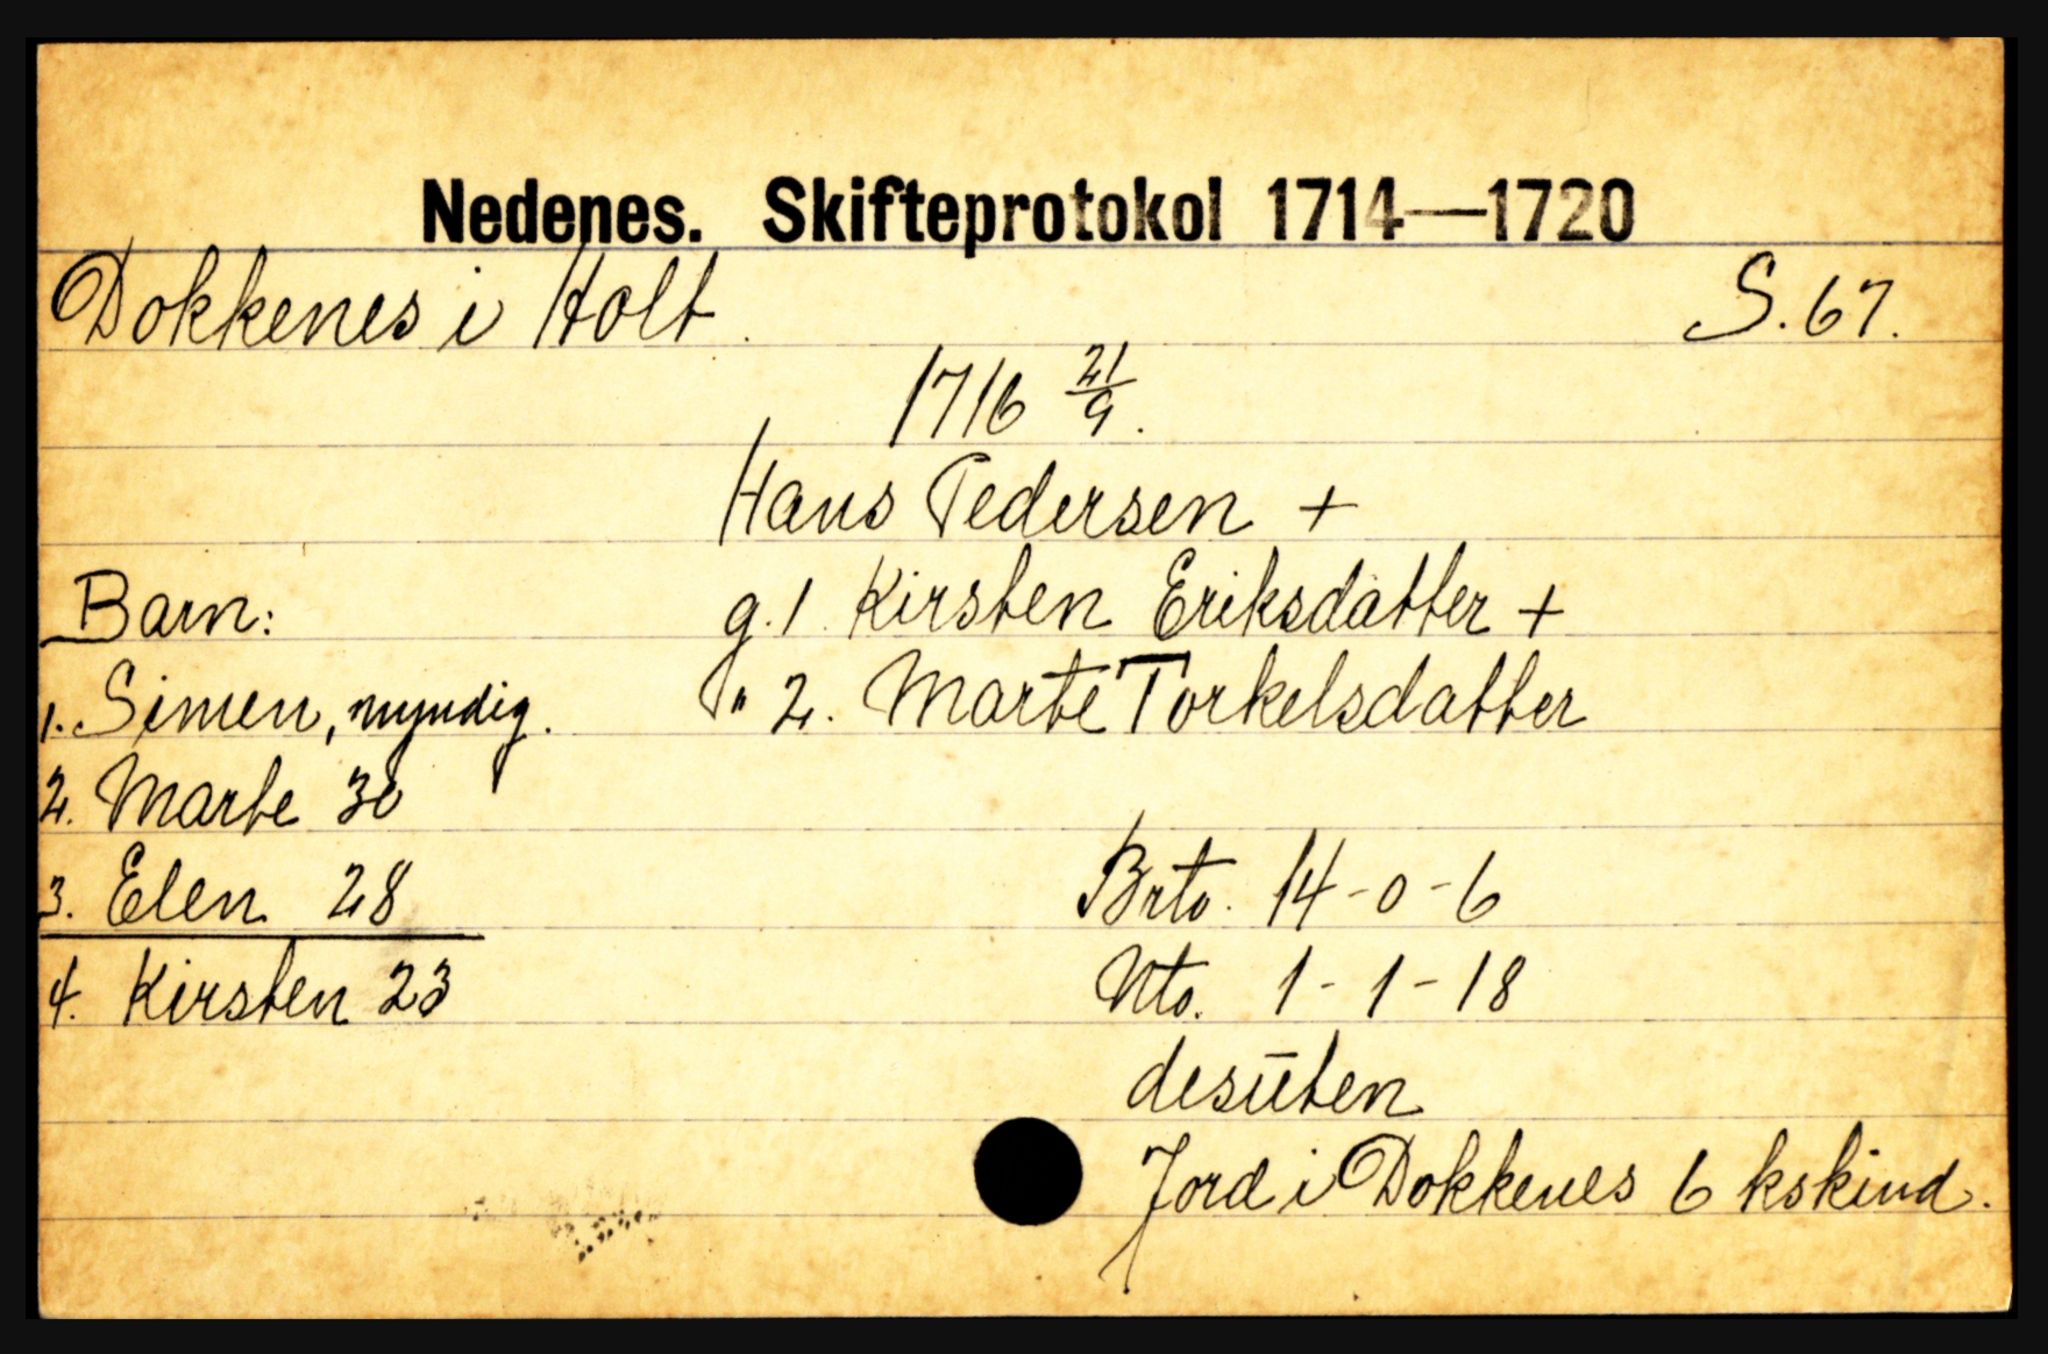 Nedenes. Skifteprotokol 1714—1720
Dokkenes i Holt. S. 67.
1716 21/9.
Hans Pedersen +
g. 1 Kirsten Eriksdatter +
" 2. Marte Torkelsdatter
Barn:
1. Simen, myndig.
2. Marte 30
3. Elen 28
4. Kirsten 23
Brto. 14-0-6
Nto. 1-1-18
desūten
Jord i Dokkenes 6 kskind.